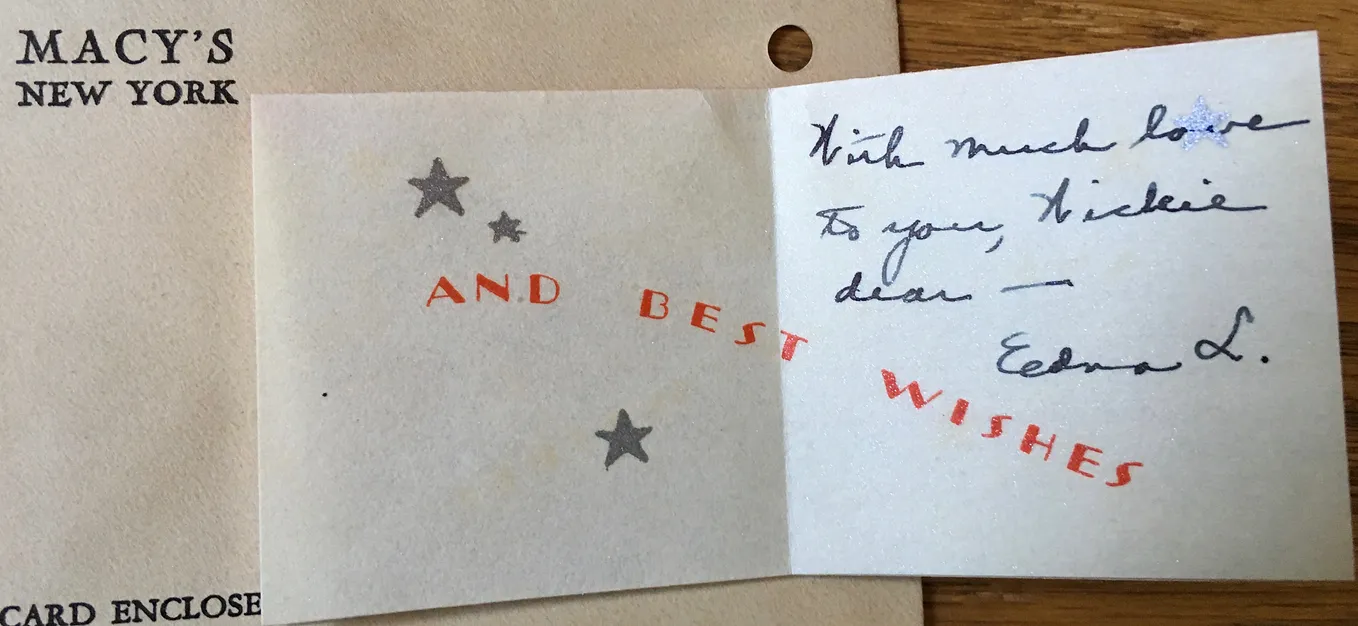 MACY'S
NEW YORK
AND BEST WISHES
With much love
to you,
dear —
Edna L.
CARD ENCLOSE